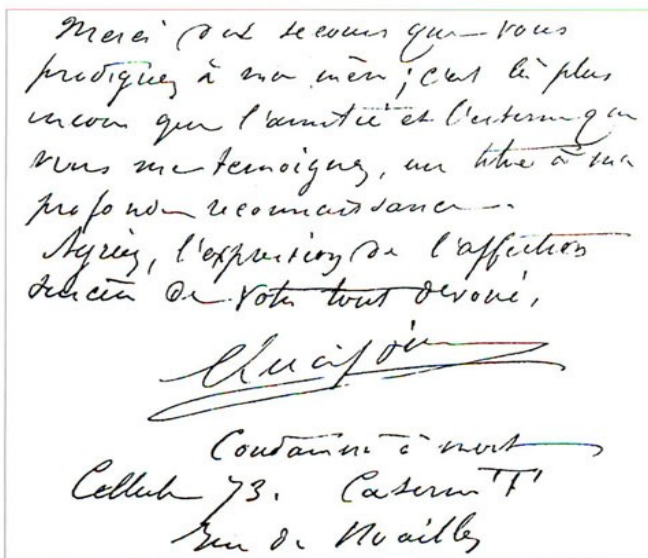 Merci des secours que vous
prodiguez à ma mère ; c'est là plus
encore que l'amitié et l'estime que
vous me témoignez, un titre à ma
profonde reconnaissance.
Agréez, l'expression de l'affection
sincère de votre tout dévoué,
Condamné à mort
Cellule 73. Caserne "F"
Rue de Noailles